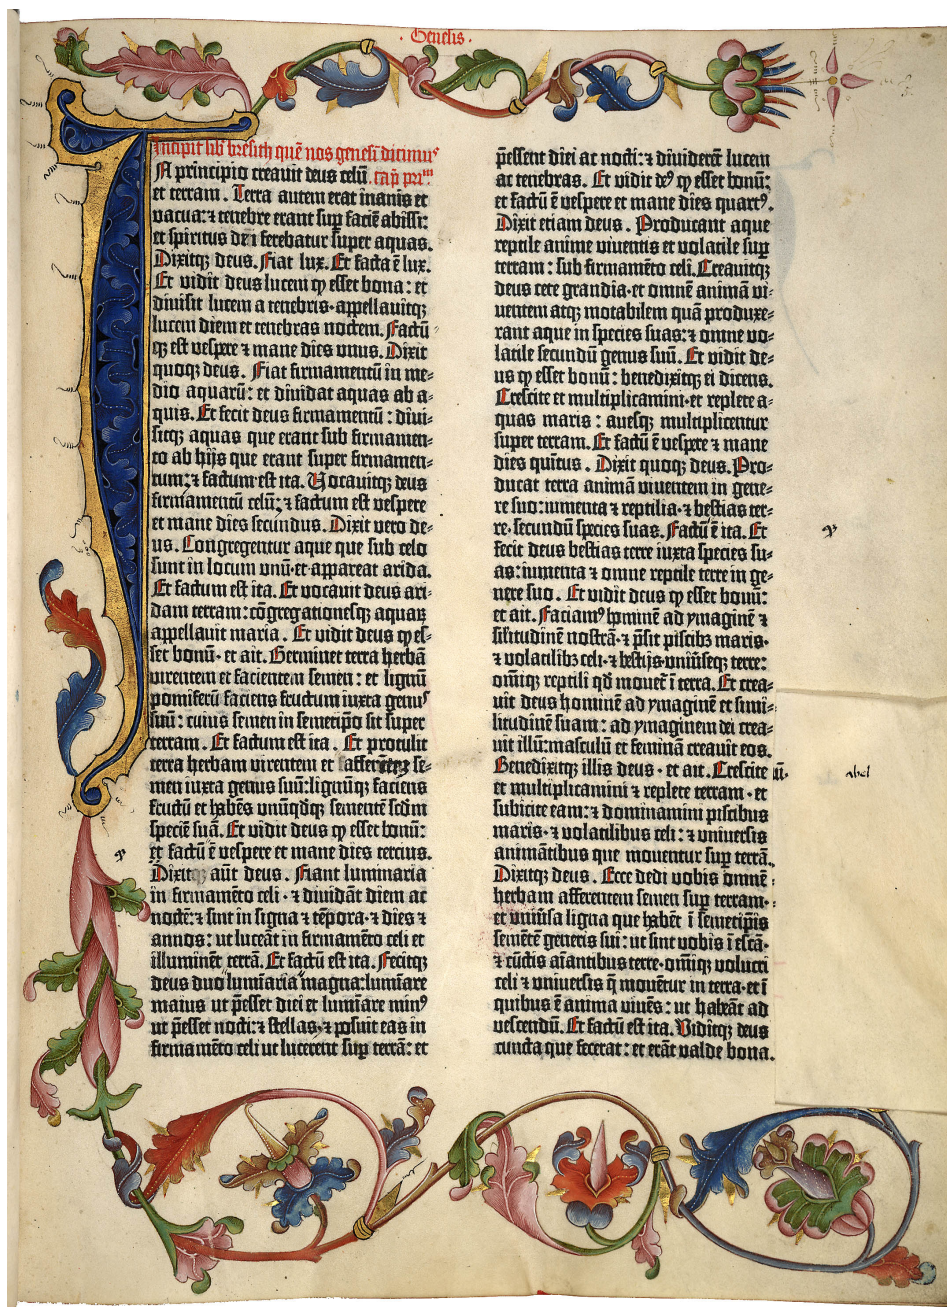 · Genesis ·
Incipit lib̃ bresith quē nos genesi dicimus
In principio creauit deus celū cap̃ prim
et terram. Terra autem erat inanis et
vacua: ⁊ tenebre erant sup̄ faciē abissi:
et spiritus dei ferebatur super aquas.
Dixitqꝫ deus. Fiat lux. Et facta ē lux.
Et vidit deus lucem ꝙ esset bona: et
diuisit lucem a tenebris· appellauitqꝫ
lucem diem et tenebras noctem. Factū
qꝫ est vespere ⁊ mane dies vnus. Dixit
quoqꝫ deus. Fiat firmamentū in me⸗
dio aquarū: et diuidat aquas ab a⸗
quis. Et fecit deus firmamentū: diui⸗
sitqꝫ aquas que erant sub firmamen⸗
to ab hijs que erant super firmamen⸗
tum: ⁊ factum est ita. Vocauitqꝫ deus
firmamentū celū: ⁊ factum est vespere
et mane dies secundus. Dixit vero de⸗
us. Congregentur aque que sub celo
sunt in locum vnū· et appareat arida.
Et factum est ita. Et vocauit deus ari⸗
dam terram: cōgregationesqꝫ aquaꝝ
appellauit maria. Et vidit deus ꝙ es⸗
set bonū· et ait. Germinet terra herbā
virentem et facientem semen: et lignū
pomiferū faciens fructum iuxta genus
suū: cuius semen in semetip̄o sit super
terram. Et factum est ita. Et protulit
terra herbam virentem et afferentem se⸗
men iuxta genus suū: lignūqꝫ faciens
fructū et habēs vnūqdqꝫ sementē scdm
speciē suā. Et vidit deus ꝙ esset bonū:
et factū ē vespere et mane dies tercius.
Dixitqꝫ aūt deus. Fiant luminaria
in firmamēto celi· ⁊ diuidāt diem ac
noctē: ⁊ sint in signa ⁊ tēpora· ⁊ dies ⁊
annos: ut luceāt in firmamēto celi et
illuminēt terrā. Et factū est ita. Fecitqꝫ
deus duo lumīaria magna: lumīare
maius ut p̄esset diei et lumīare minꝰ
ut p̄esset nocti: ⁊ stellas· ⁊ posuit eas in
firmamēto celi ut lucerent sup̄ terrā: et
p̄essent diei ac nocti: ⁊ diuiderēt lucem
ac tenebras. Et vidit deꝰ ꝙ esset bonū:
et factū ē vespere et mane dies quartꝰ.
Dixit etiam deus. Producant aque
reptile anime viuentis et volatile sup̄
terram: sub firmamēto celi. Creauitqꝫ
deus cete grandia· et omnē animā vi⸗
uentem atqꝫ motabilem quā produxe⸗
rant aque in species suas: ⁊ omne vo⸗
latile secundū genus suū. Et vidit de⸗
us ꝙ esset bonū: benedixitqꝫ ei dicens.
Crescite et multiplicamini· et replete a⸗
quas maris: auesqꝫ multiplicentur
super terram. Et factū ē vespere ⁊ mane
dies quītus. Dixit quoqꝫ deus. Pro⸗
ducat terra animā viuentem in gene⸗
re suo: iumenta ⁊ reptilia· ⁊ bestias ter⸗
re· secundū species suas. Factū ē ita. Et
fecit deus bestias terre iuxta species su⸗
as: iumenta ⁊ omne reptile terre in ge⸗
nere suo. Et vidit deus ꝙ esset bonū:
et ait. Faciamꝰ hominē ad ymaginē ⁊
silitudinē nostrā· ⁊ p̄sit piscibꝫ maris·
⁊ volatilibꝫ celi· ⁊ bestijs· vniūseqꝫ terre:
omīqꝫ reptili qd mouet̃ ī terra. Et crea⸗
uit deus hominē ad ymaginē et simi⸗
litudinē suam: ad ymaginem dei crea⸗
uit illū: masculū et feminā creauit eos.
Benedixitqꝫ illis deus· et ait. Crescite
et multiplicamini ⁊ replete terram· et
subicite eam: ⁊ dominamini piscibus
maris· ⁊ volatilibus celi: ⁊ vniuersis
animātibus que mouentur sup̄ terrā.
Dixitqꝫ deus. Ecce dedi vobis omnē
herbam afferentem semen sup̄ terram·
et vniūsa ligna que habēt ī semetip̄is
semētē generis sui: ut sint vobis ī escā·
⁊ cūctis aīantibus terre· omīqꝫ volucri
celi ⁊ vniuersis q̄ mouētur in terra· et ī
quibus ē anima viuēs: ut habeāt ad
vescendū. Et factū est ita. Viditqꝫ deus
cuncta que fecerat: et erāt valde bona.
abel